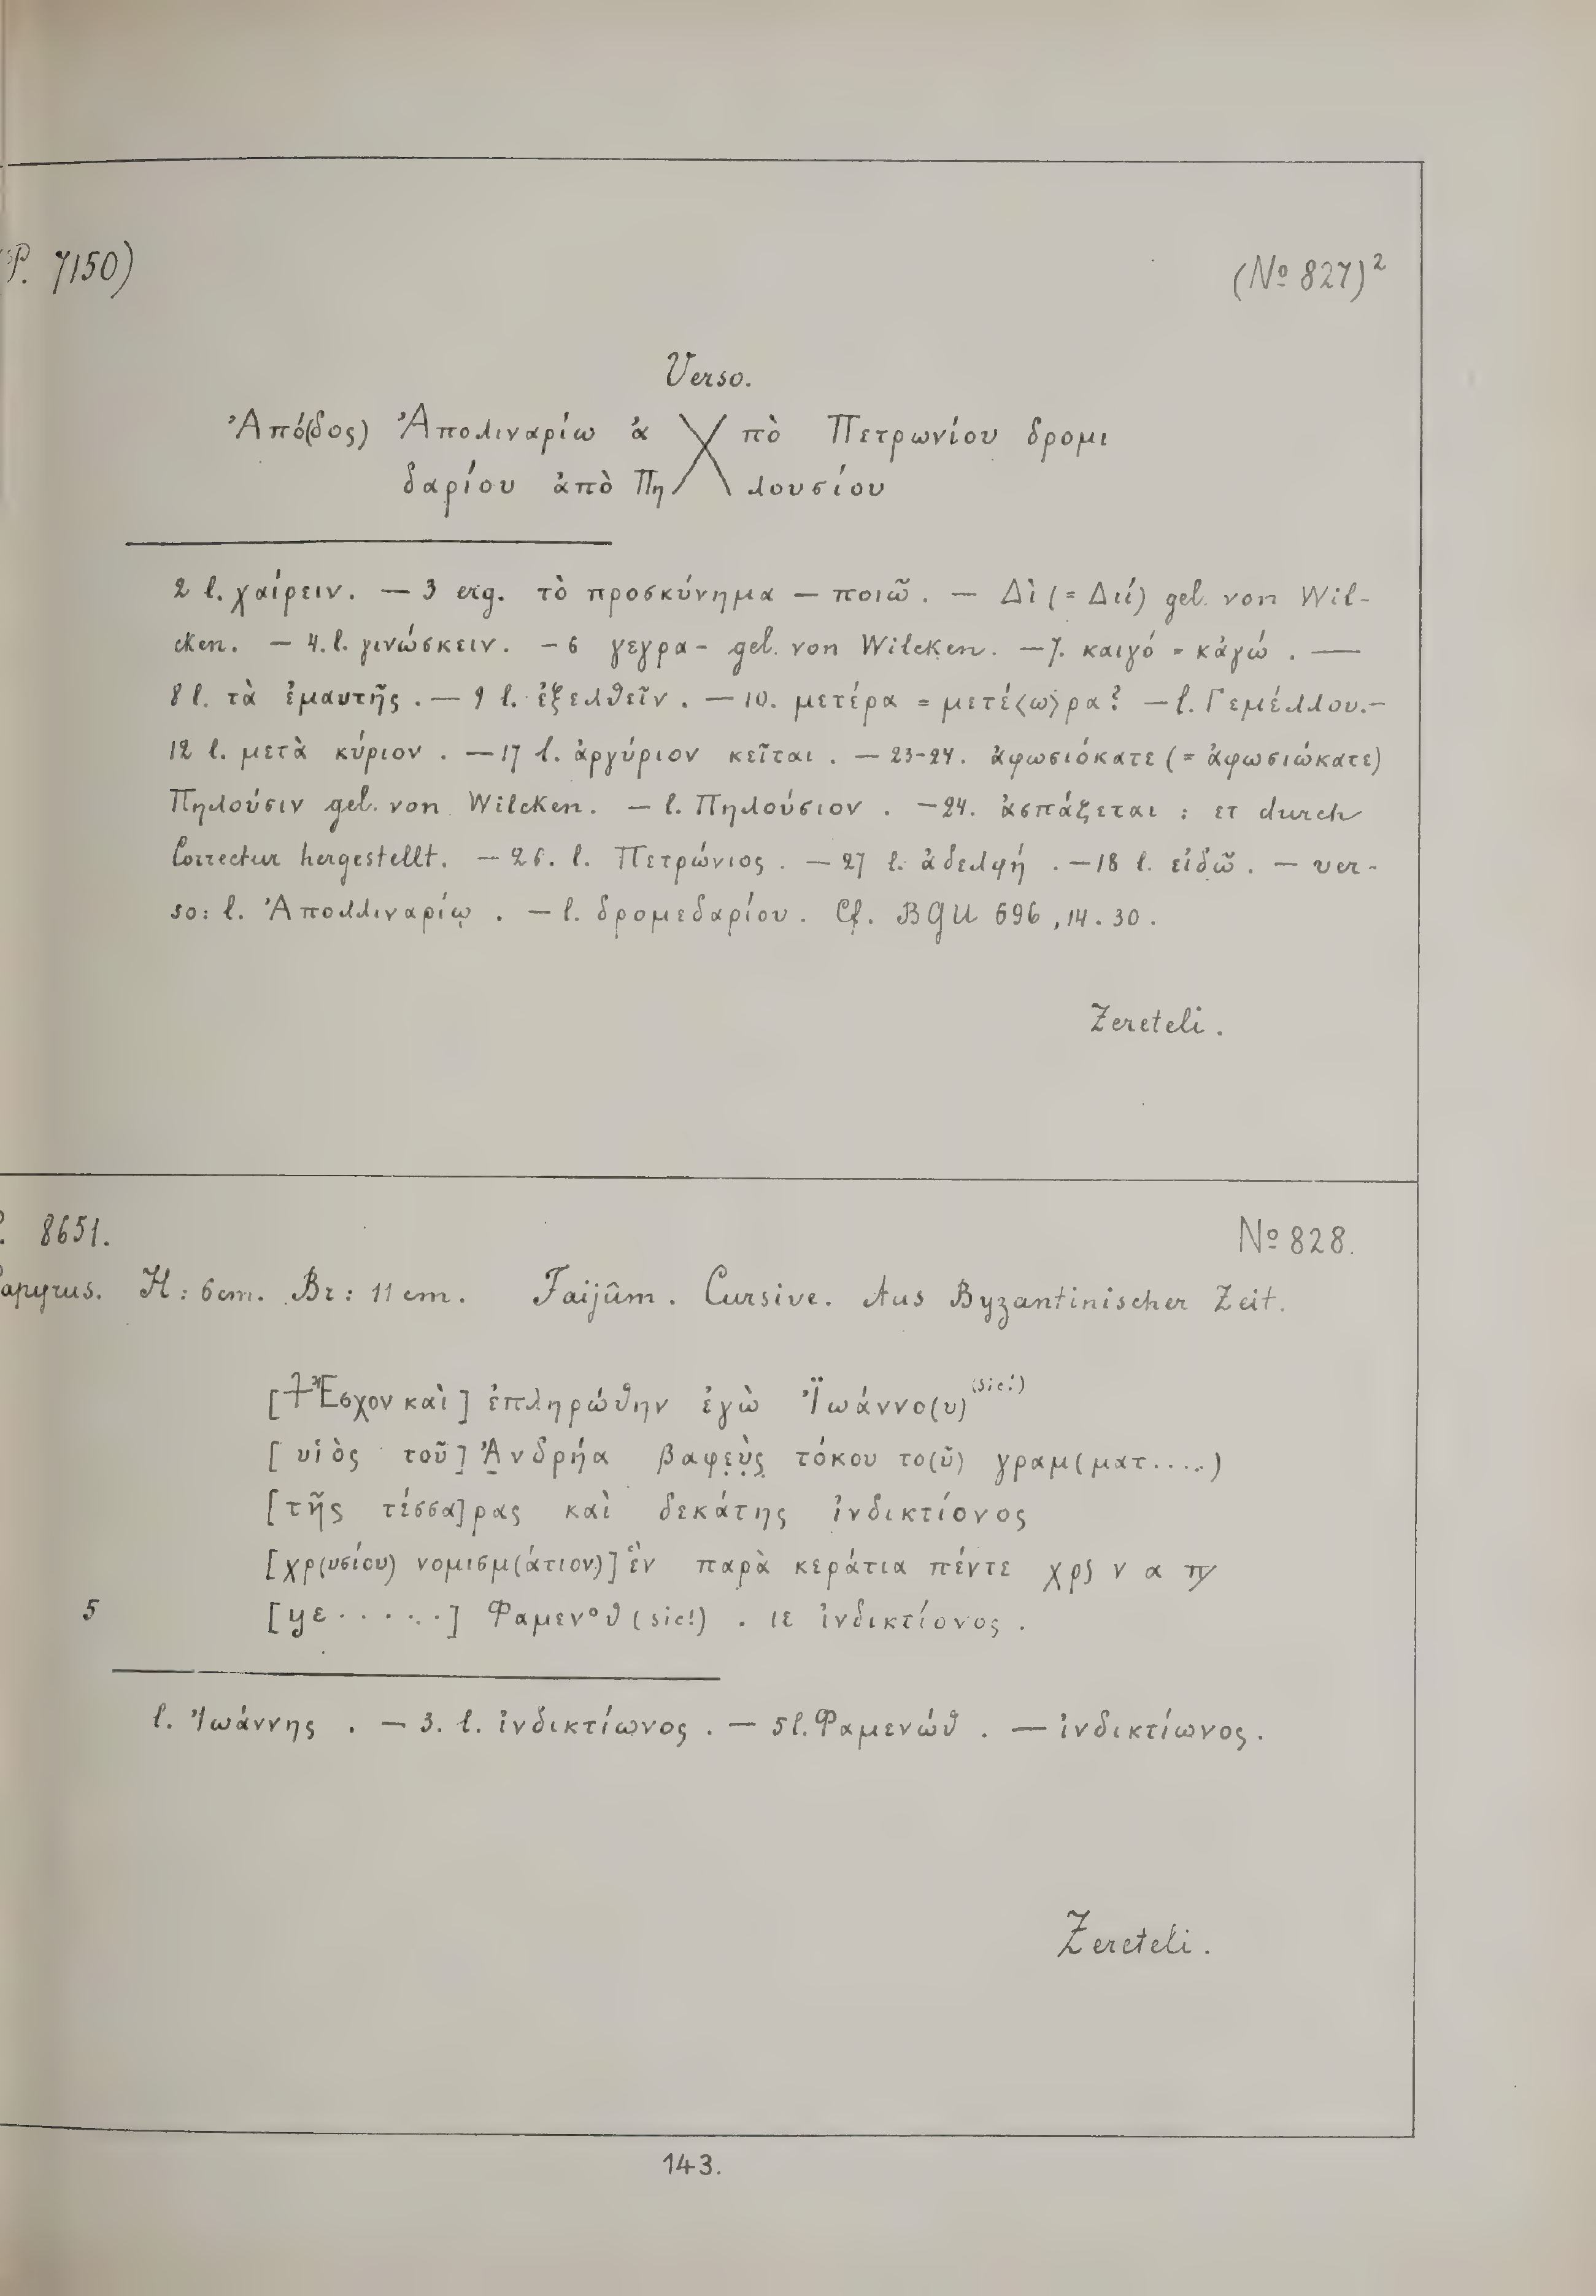 P. 7150) (№ 827)²
Verso.
Ἀπό(δος) Ἀπολιναρίω ἀ πὸ Πετρωνίου δρομι
δαρίου ἀπὸ Πη λουσίου
2 l. χαίρειν. — 3 erg. τὸ προσκύνημα — ποιῶ. — Δὶ (= Διί) gel. von Wil-
cken. — 4. l. γινώσκειν. — 6 γεγρα- gel. von Wilcken. — 7. καιγό = κἀγώ. —
8 l. τὰ ἐμαυτῆς. — 9 l. ἐξελθεῖν. — 10. μετέρα = μετέ<ω>ρα? — l. Γεμέλλου. —
12 l. μετὰ κύριον. — 17 l. ἀργύριον κεῖται. — 23-24. ἀφωσιόκατε (= ἀφωσιώκατε)
Πηλούσιν gel. von Wilcken. — l. Πηλούσιον. — 24. ἀσπάζεται: ετ durch
Correctur hergestellt. — 26. l. Πετρώνιος. — 27 l. ἀδελφή. — 18 l. εἰδῶ. — ver-
so: l. Ἀπολλιναρίῳ. — l. δρομεδαρίου. Cf. BGU 696, 14. 30.
Zereteli.
8651. № 828.
apyrus. H: 6 cm. Br: 11 cm. Faijûm. Cursive. Aus Byzantinischer Zeit.
[⳨ Ἔσχον καὶ] ἐπληρώθην ἐγὼ Ἰ̈ωάννο(υ) (sic!)
[υἱὸς τοῦ] Ἀ̣νδρήα βαφε̣ὺ̣ς̣ τόκου το(ῦ) γραμ(ματ.....)
[τῆς τέσσα]ρας καὶ δεκάτης ἰνδικτίονος
[χρ(υσίου) νομισμ(άτιον)] ἓν παρὰ κεράτια πέντε χρς ν α π
5 [γε......] Φαμενοθ (sic!). ιε ἰνδικτίονος.
l. Ἰωάννης. — 3. l. ἰνδικτίωνος. — 5 l. Φαμενώθ. — ἰνδικτίωνος.
Zereteli.
143.